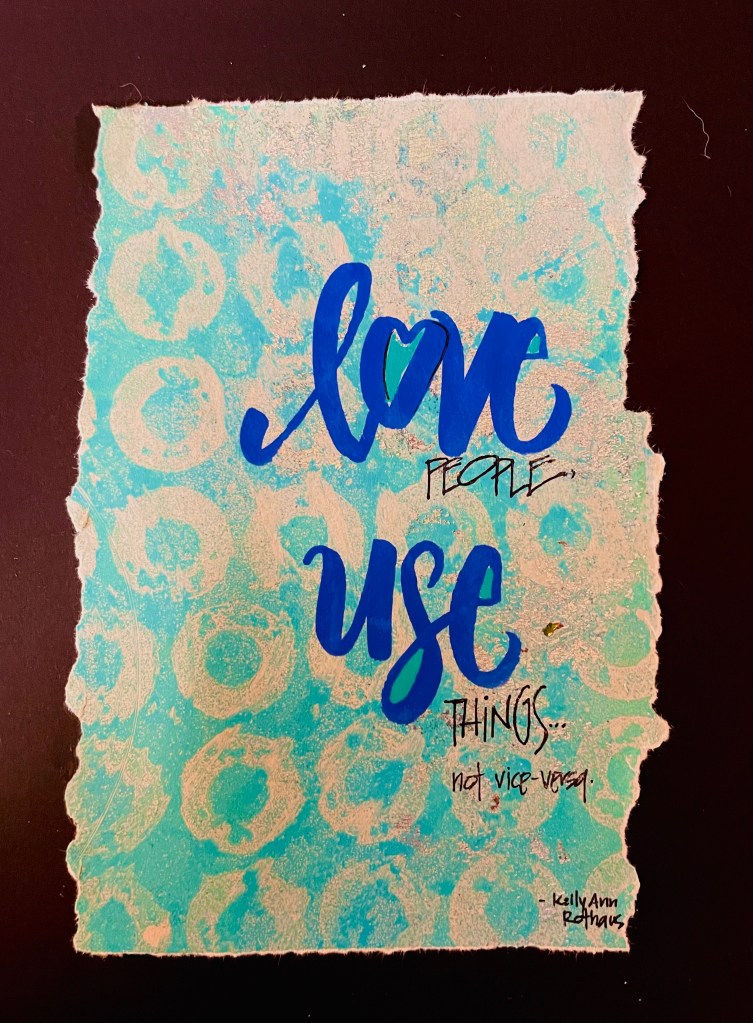 love
PEOPLE,
use
THiNGS...
not vice-versa.
- Kelly Ann
Rothaus